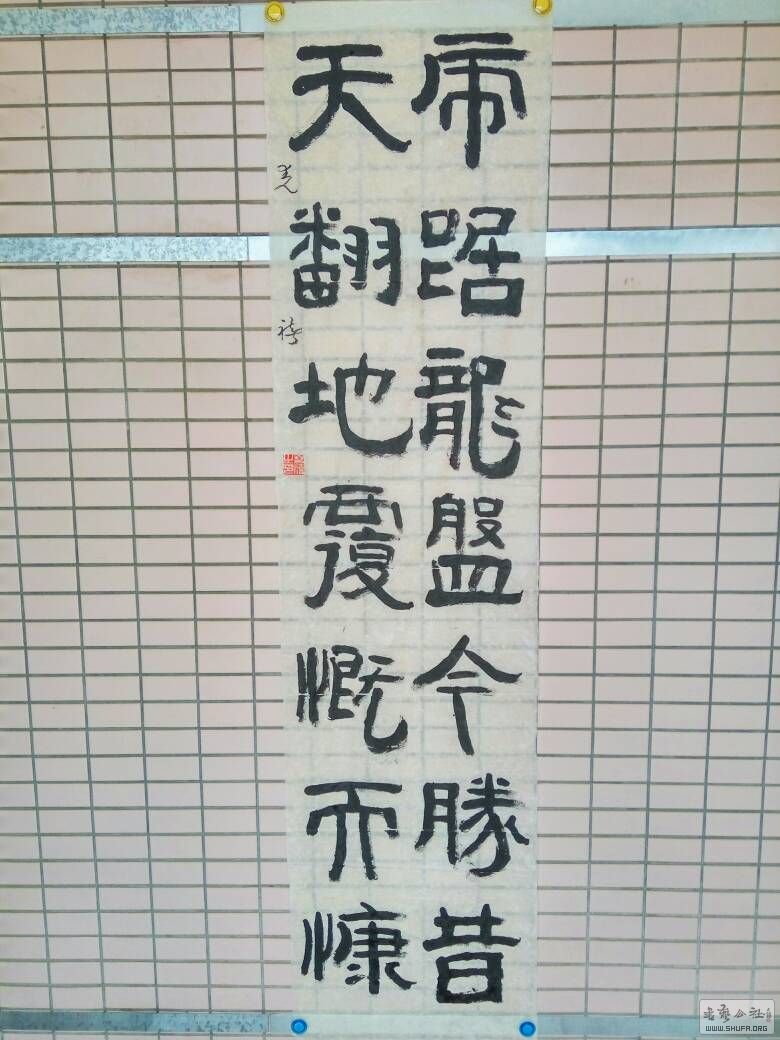 虎踞龍盤今勝昔
天翻地覆慨而慷
书藝公社
WWW.SHUFA.ORG